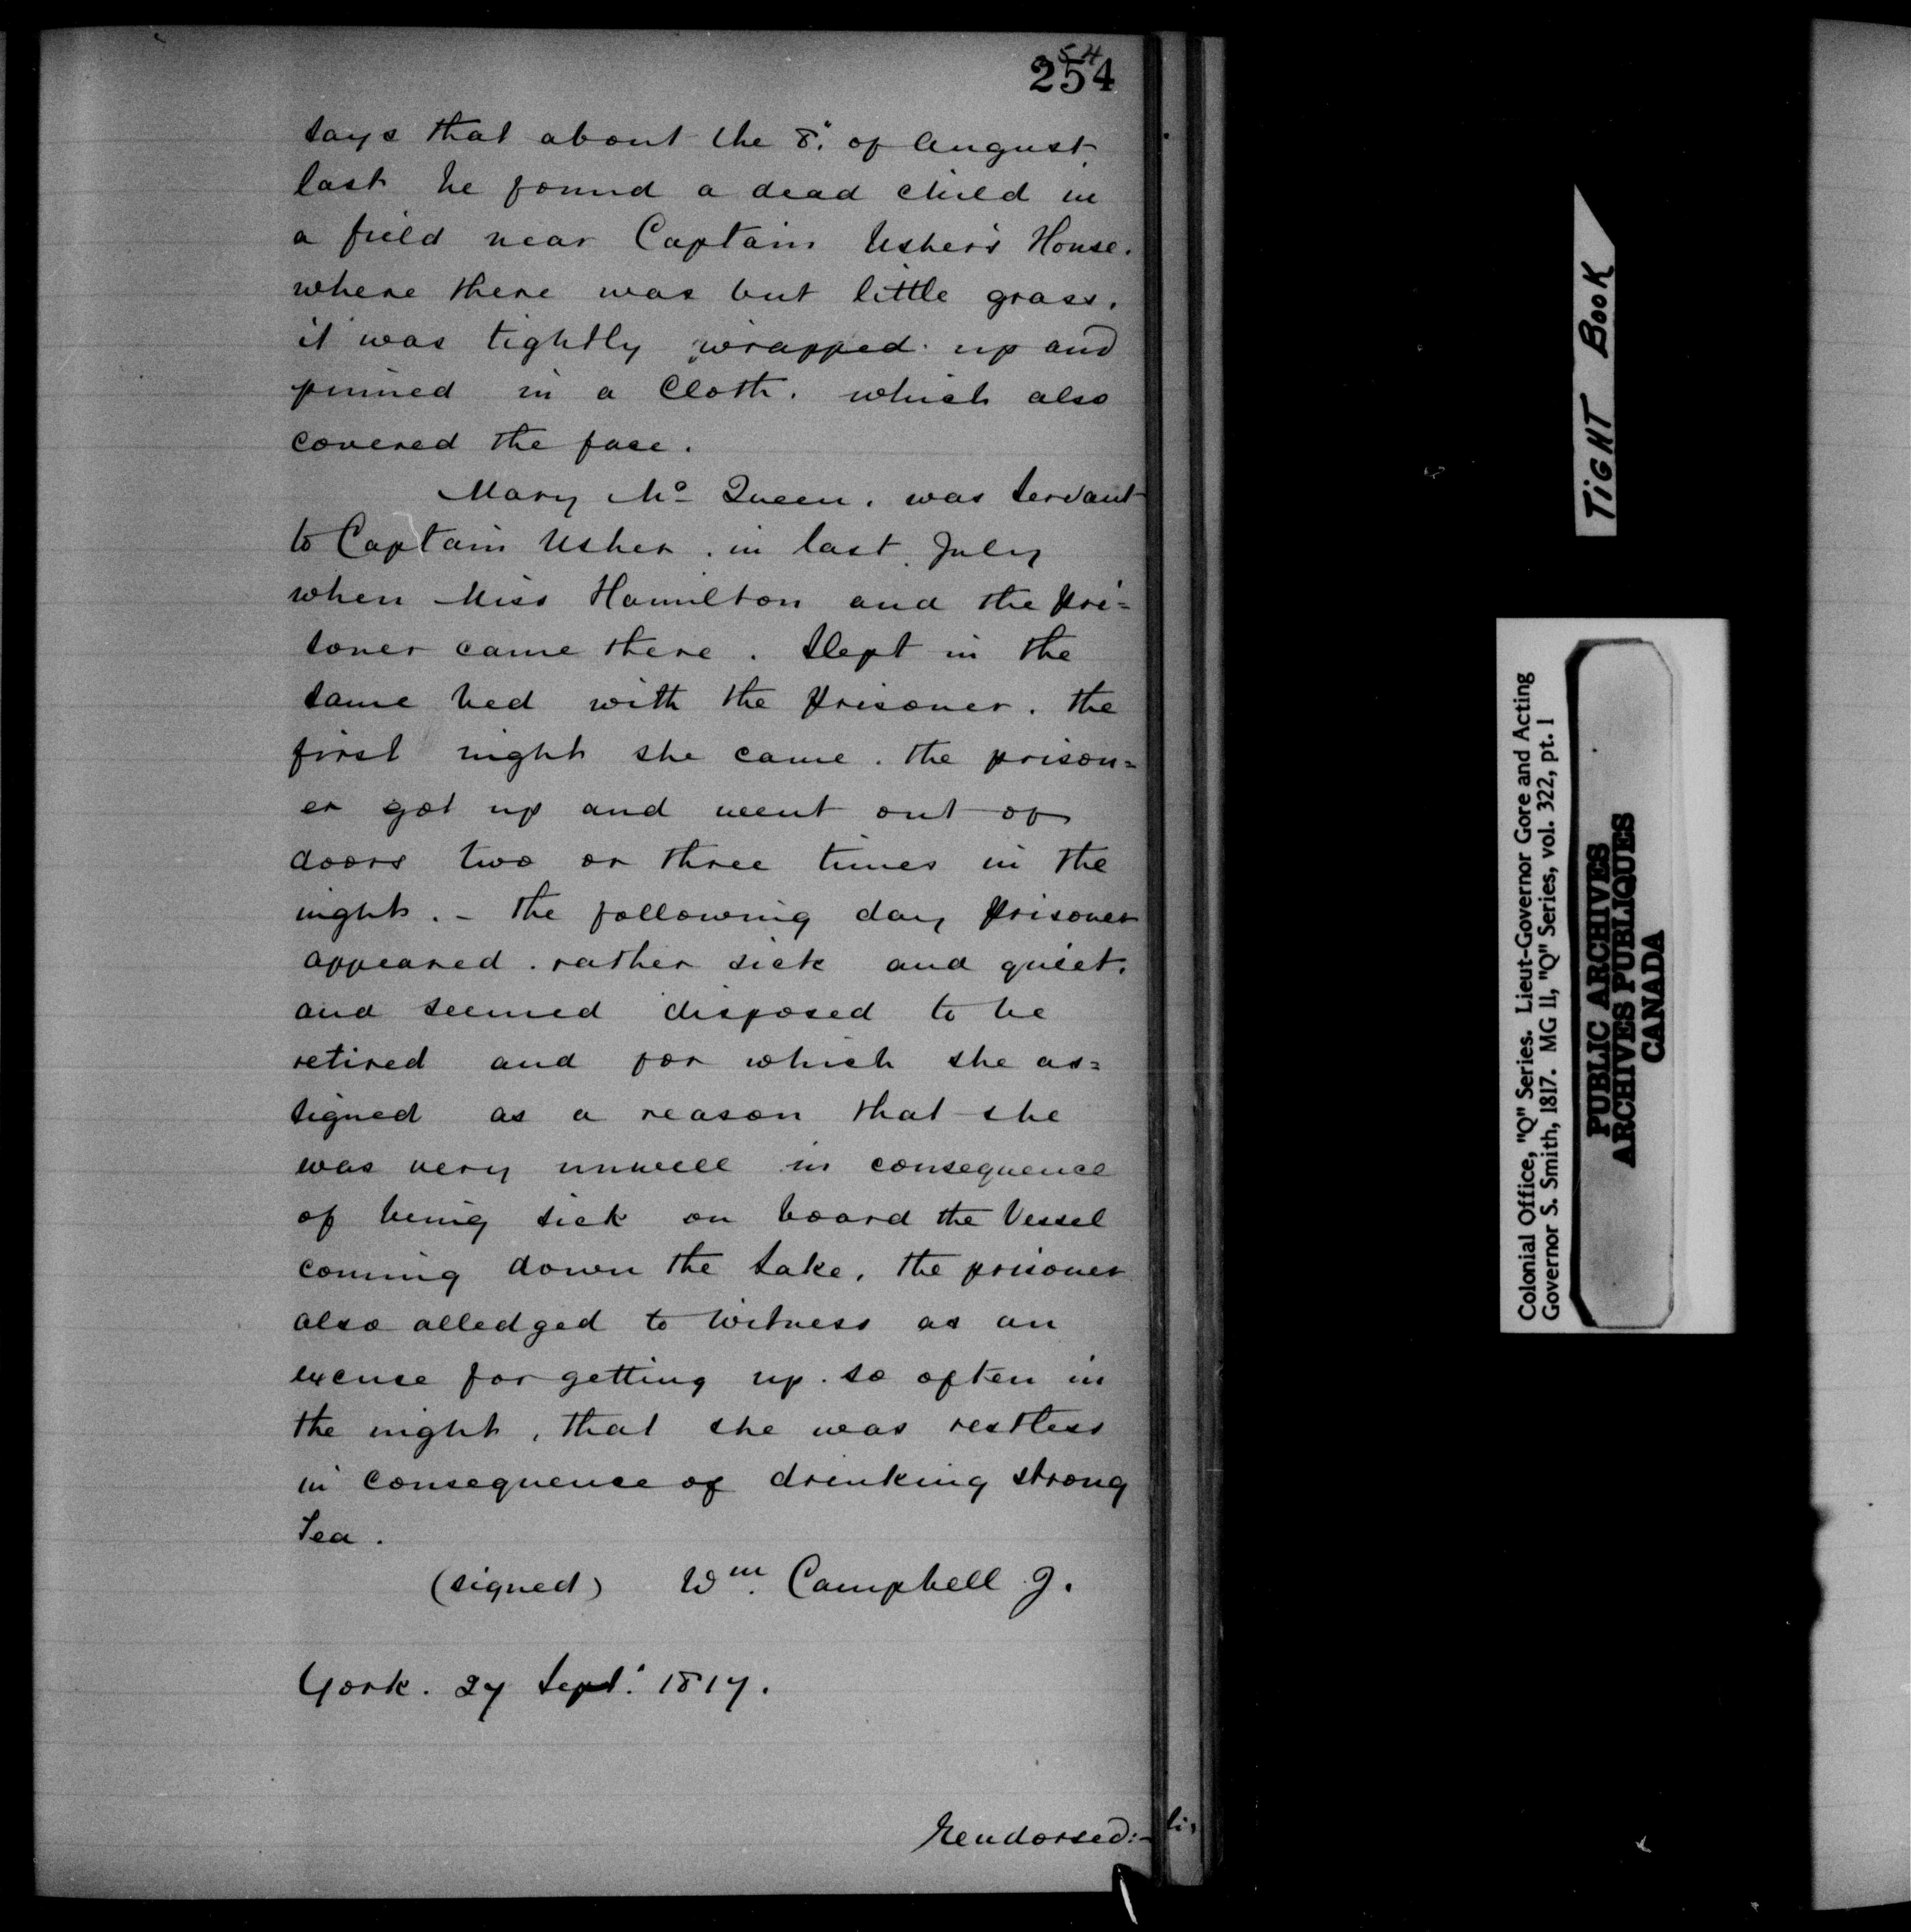 54
254
says that about the 8." of August,
last he found a dead child in
a field near Captain Usher's House.
where there was but little grass.
it was tightly wrapped up and
pinned in a Cloth. which also
covered the face.
Mary Mc Queen. was servant
to Captain Usher. in last July
when Miss Hamilton and the pri=
soner came there. Slept in the
same bed with the prisoner. the
first night she came. the prison=
er got up and went out of
doors two or three times in the
night. - the following day prisoner
appeared. rather sick and quiet.
and seemed disposed to be
retired and for which she as=
signed as a reason that she
was very unwell in consequence
of being sick on board the Vessel
coming down the Lake. the prisoner
also alledged to witness as an
excuse for getting up. so often in
the night, that she was restless
in consequence of drinking strong
Tea.
(signed) Wm. Campbell J.
York. 27 Sept. 1817.
Endorsed:-
TIGHT BOOK
Colonial Office, "Q" Series. Lieut-Governor Gore and Acting
Governor S. Smith, 1817. MG 11, "Q" Series, vol. 322, pt. 1
PUBLIC ARCHIVES
ARCHIVES PUBLIQUES
CANADA